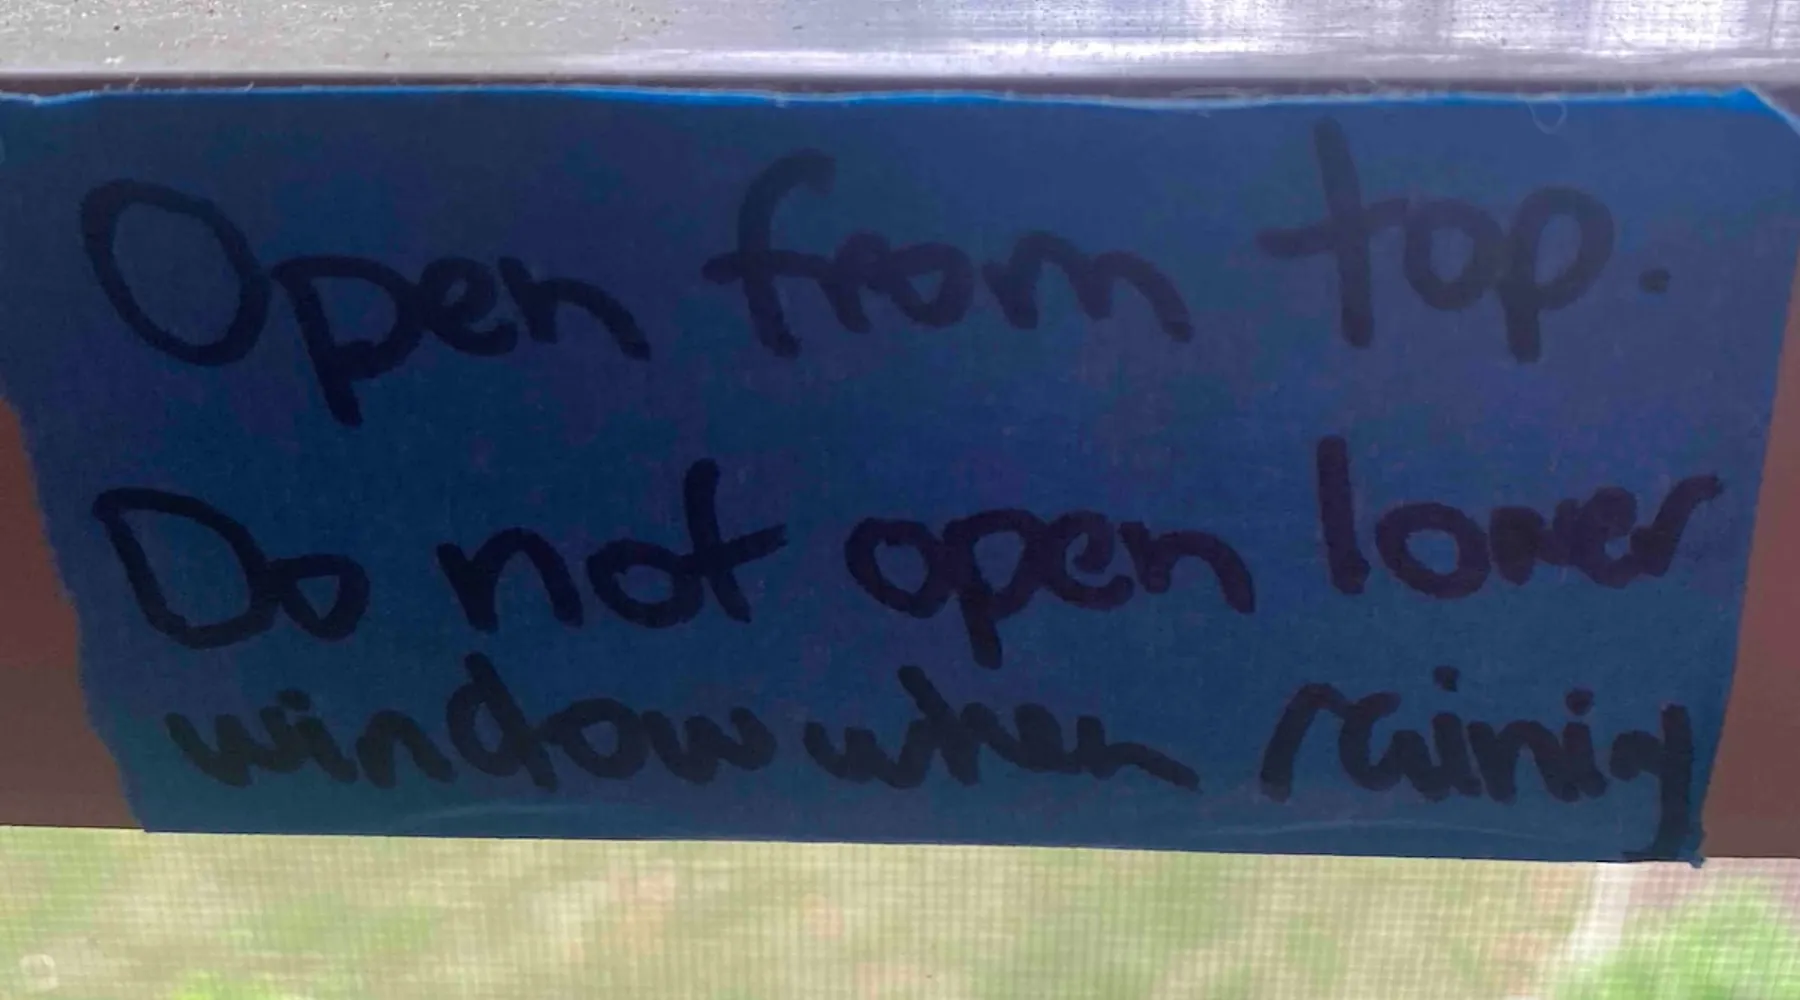 Open from top.
Do not open lower
window when rainig